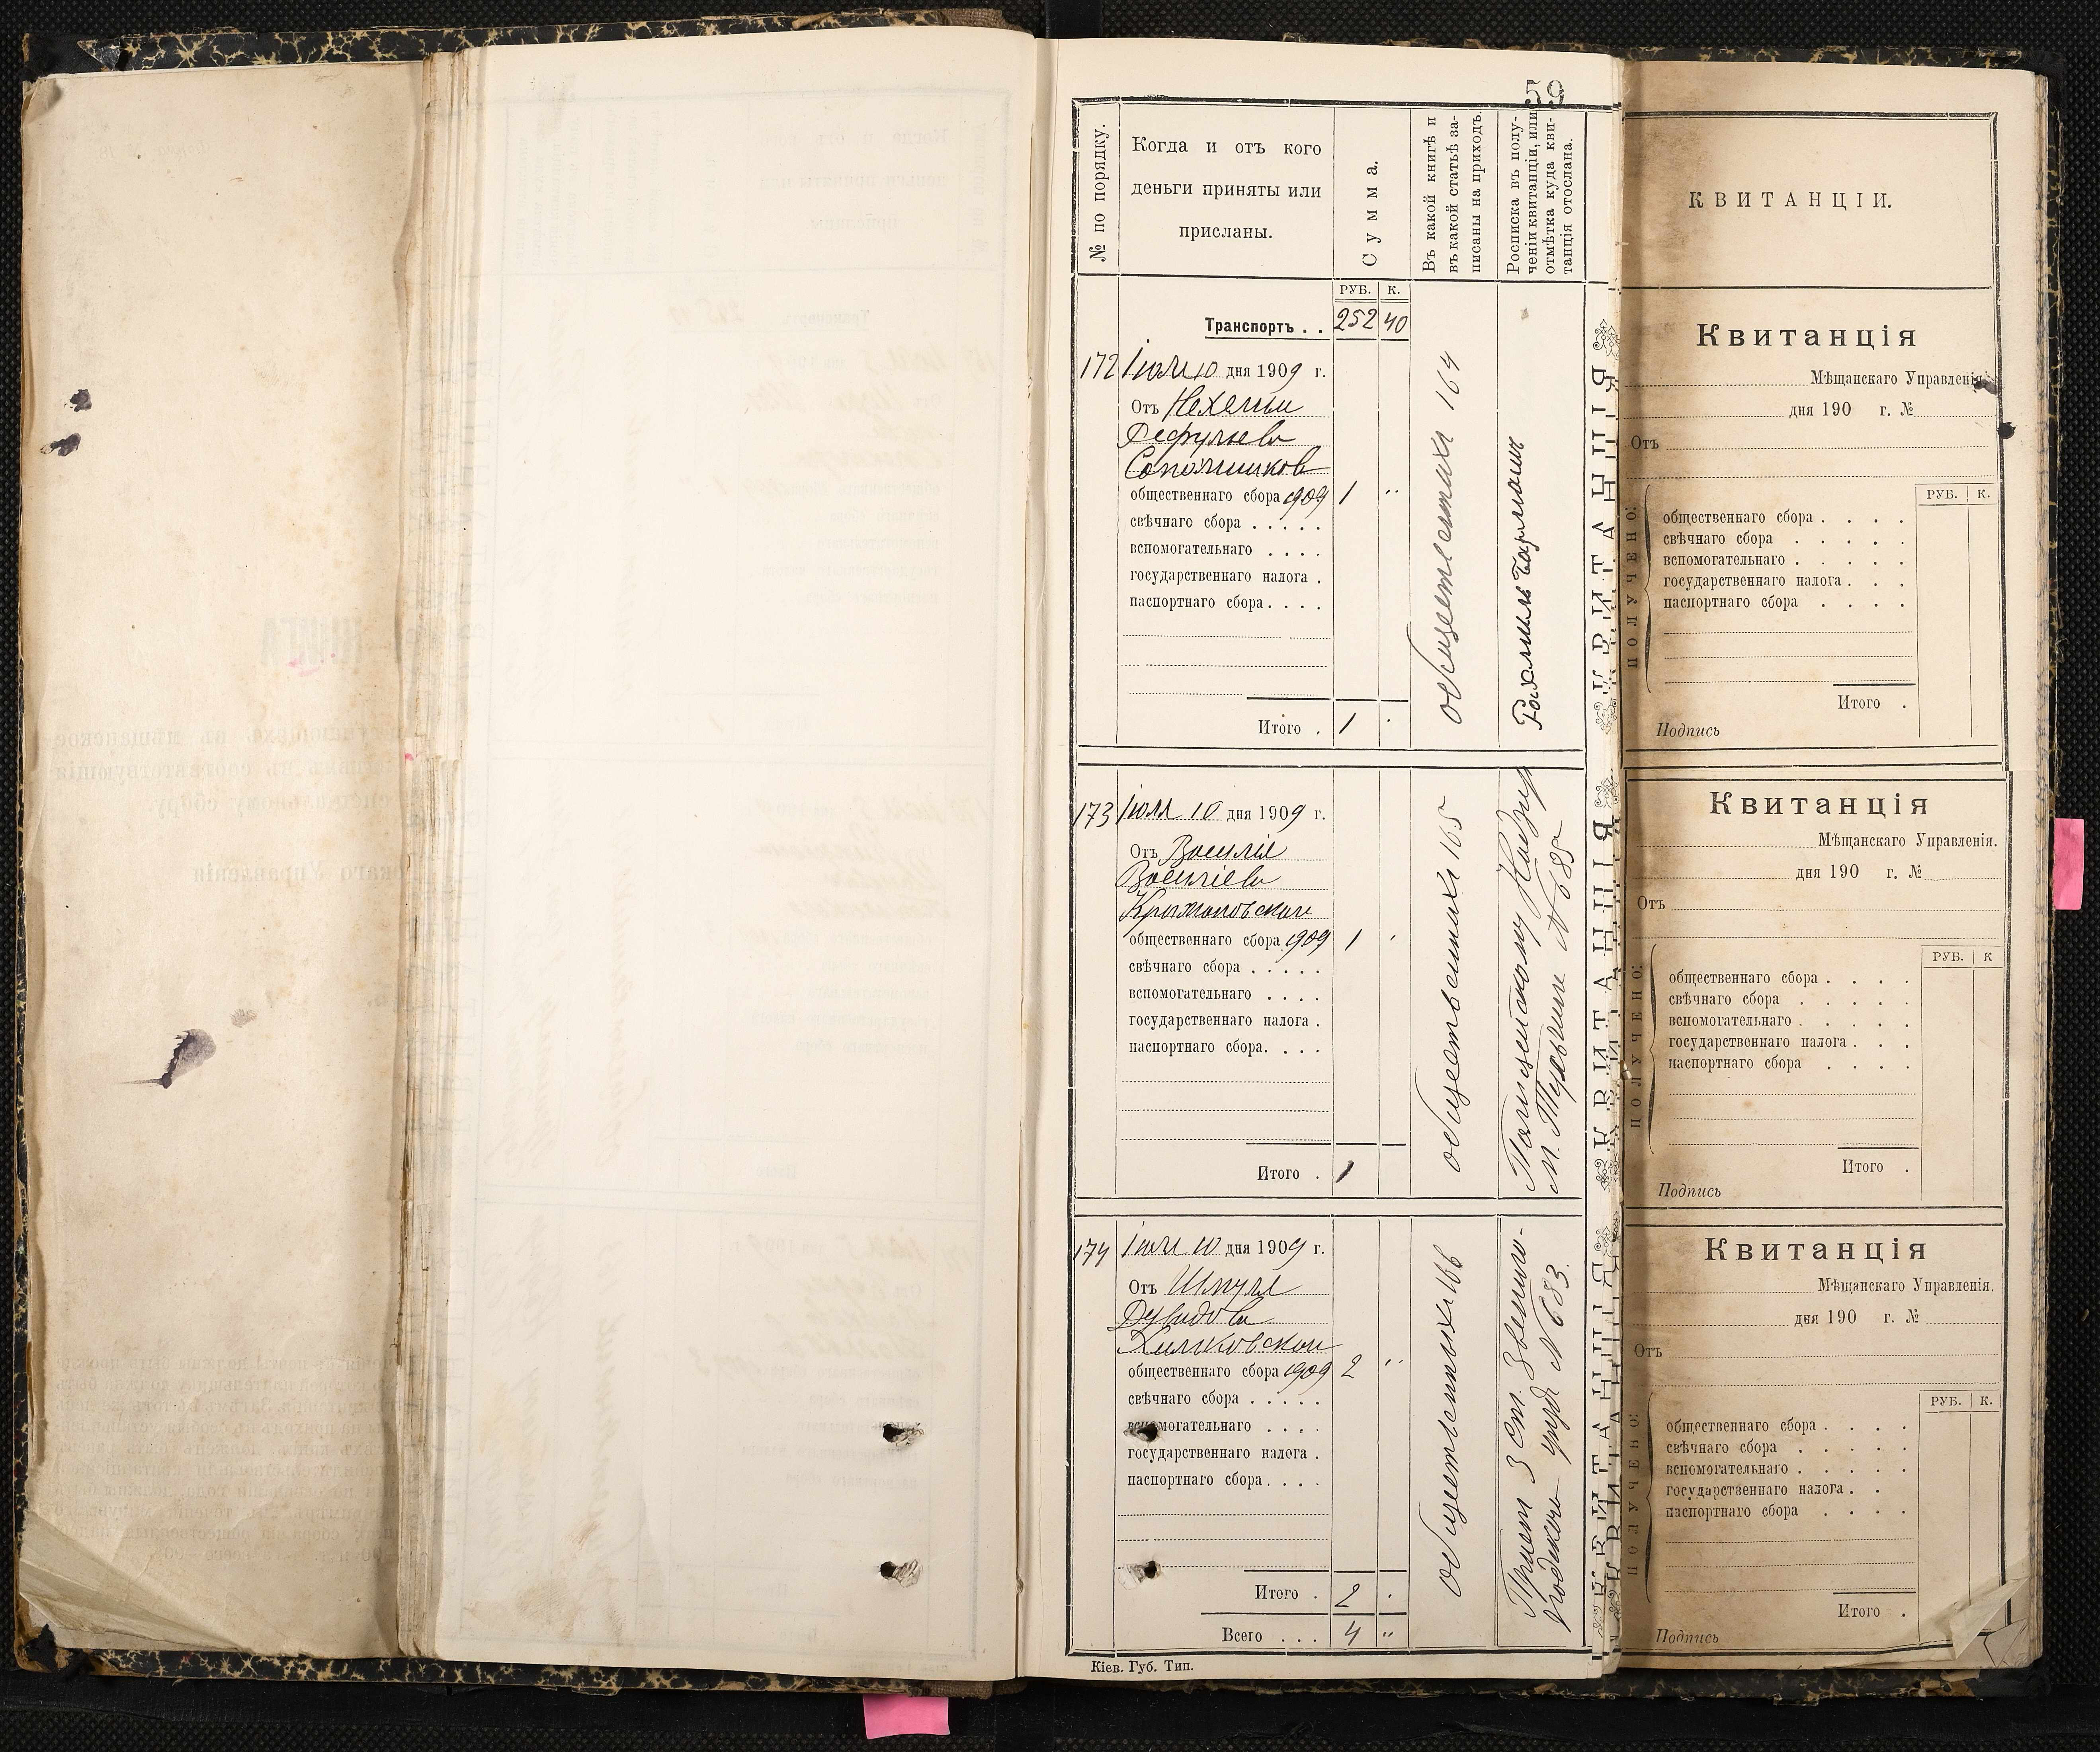 59
№ по порядку.
Когда и отъ кого
деньги приняты или
присланы.
Сумма.
Въ какой книгѣ и
въ какой статьѣ за-
писаны на приходъ.
Росписка въ полу-
ченіи квитанціи, или
отмѣтка куда кви-
танція отослана.
РУБ. К.
Транспортъ . . 252 40
172 Іюля 10 дня 1909 г.
Отъ Нехемьи
Сапожников
общественнаго сбора 1909 1 "
свѣчнаго сбора . . . . .
вспомогательнаго . . . .
государственнаго налога .
паспортнаго сбора . . . .
Итого . 1
164
173 Іюля 10 дня 1909 г.
Отъ Василія
Василіева
Крыжановскаго
общественнаго сбора 1909 1
свѣчнаго сбора . . . . .
вспомогательнаго . . . .
государственнаго налога .
паспортнаго сбора. . . .
Итого . 1
общественныхъ 165
Полицейскому Надзир
м. № 685
174 Іюля 10 дня 1909 г.
Отъ Шмуля
Дувидова
общественнаго сбора 1909 2 "
свѣчнаго сбора . . . . .
вспомогательнаго . . . .
государственнаго налога .
паспортнаго сбора . . . .
Итого . 2
Всего . . . 4 "
общественныхъ 166
3 ст. Звениго-
родскаго уезда № 683.
Кіев. Губ. Тип.
КВИТАНЦІИ.
Квитанція
Мѣщанскаго Управленія
дня 190 г. №
Отъ
РУБ. К.
ПОЛУЧЕНО:
общественнаго сбора . . . .
свѣчнаго сбора . . . . .
вспомогательнаго . . . . .
государственнаго налога . . .
паспортнаго сбора . . . .
Итого .
Подпись
Квитанція
Мѣщанскаго Управленія.
дня 190 г. №
Отъ
РУБ. К
ПОЛУЧЕНО:
общественнаго сбора . . . .
свѣчнаго сбора . . . . .
вспомогательнаго . . . . .
государственнаго налога . . .
паспортнаго сбора . . . .
Итого .
Подпись
Квитанція
Мѣщанскаго Управленія.
дня 190 г. №
Отъ
РУБ. К.
ПОЛУЧЕНО:
общественнаго сбора . . . .
свѣчнаго сбора . . . . .
вспомогательнаго . . . . .
государственнаго налога . .
паспортнаго сбора . . . .
Итого .
Подпись